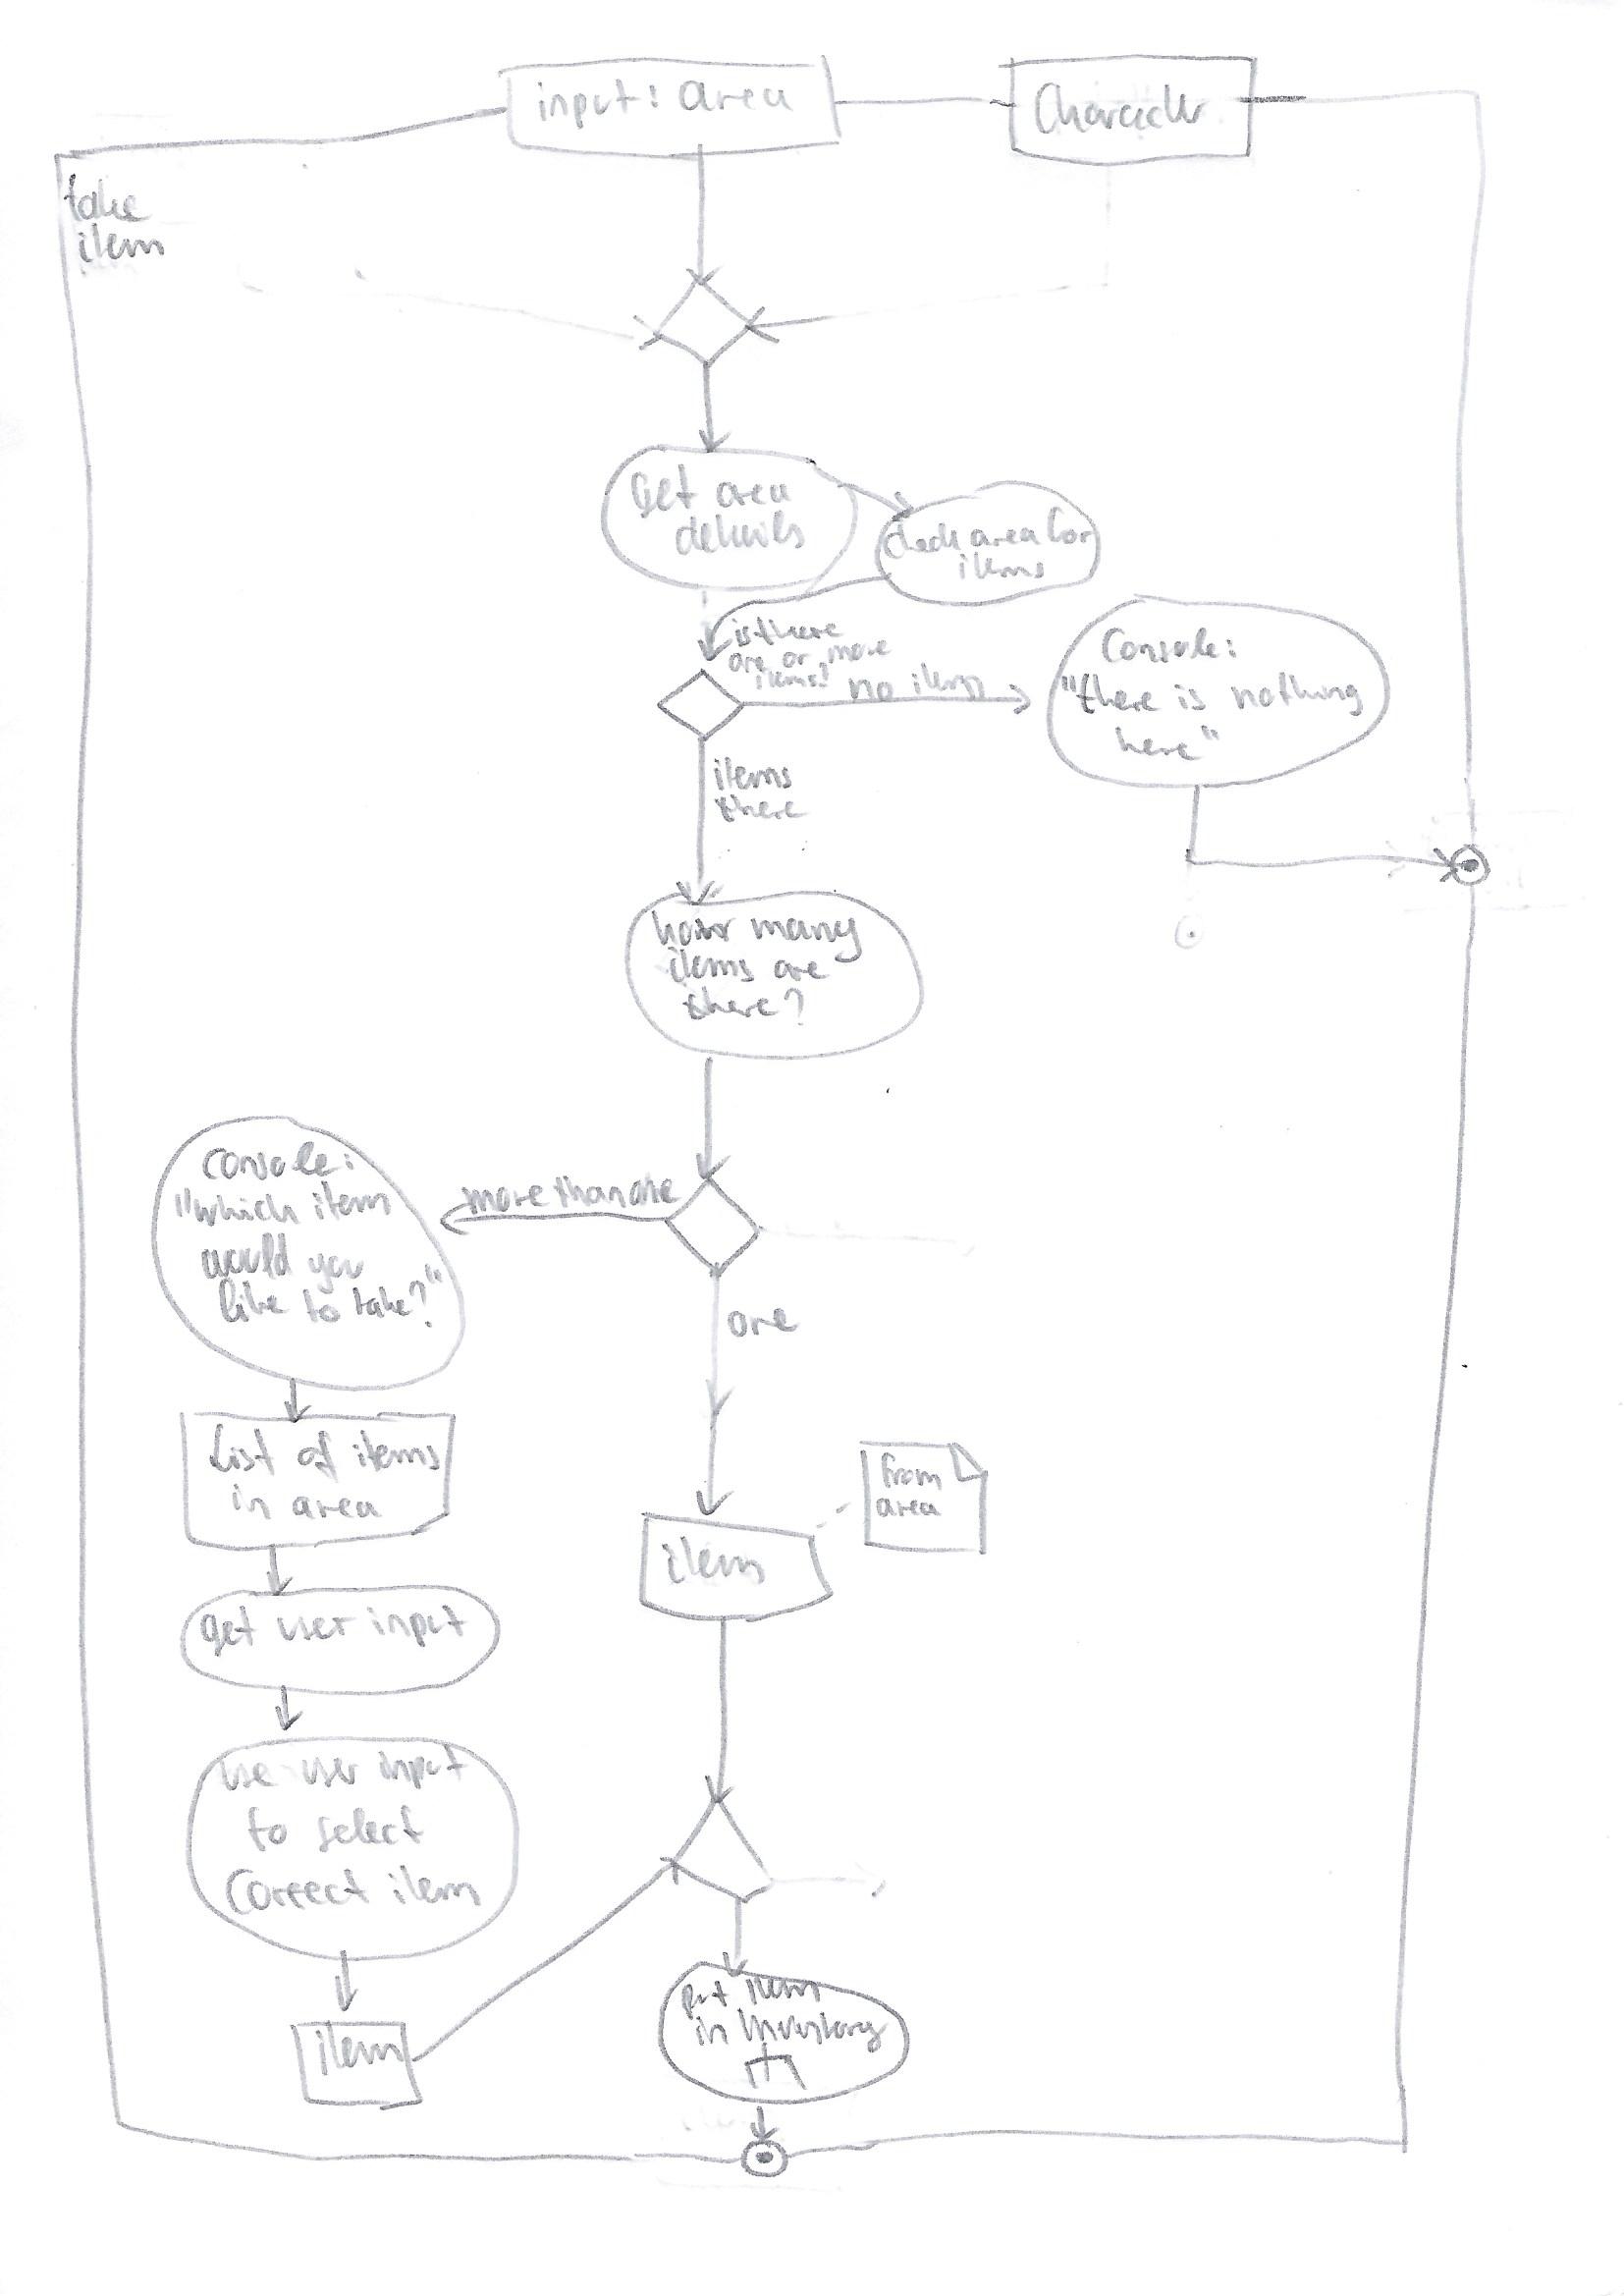 input: area
Character
take
item
Get area
details
check area for
items
is there
one or more
items?
no items
Console:
"there is nothing
here"
items
there
how many
items are
there?
more than one
Console:
"which item
would you
like to take?"
one
List of items
in area
from
area
item
get user input
use user input
to select
correct item
item
put item
in Inventory